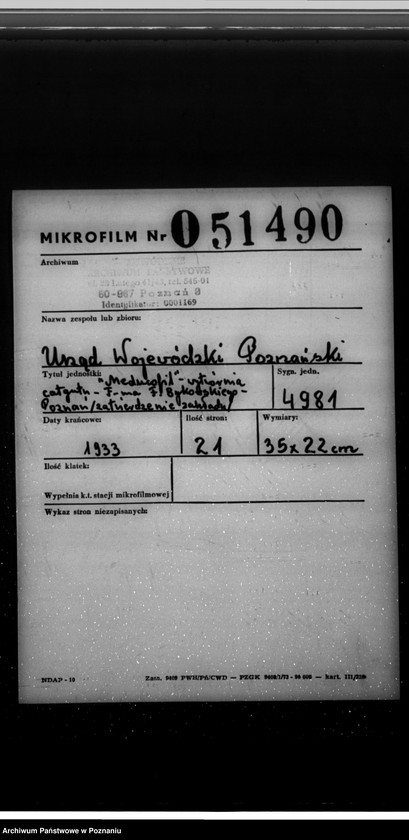 MIKROFILM Nr 051490
Archiwum
60-967 Poznań 3
Identyfikator: 0001169
Nazwa zespołu lub zbioru:
Urząd Wojewódzki Poznański
Tytuł jednostki: Sygn. jedn.
Poznań /zatwierdzenie zakładu/
4981
Daty krańcowe: Ilość stron: Wymiary:
1933 21 35x22cm
Ilość klatek:
Wypełnia k.t. stacji mikrofilmowej
Wykaz stron niezapisanych:
NDAP - 18
Archiwum Państwowe w Poznaniu